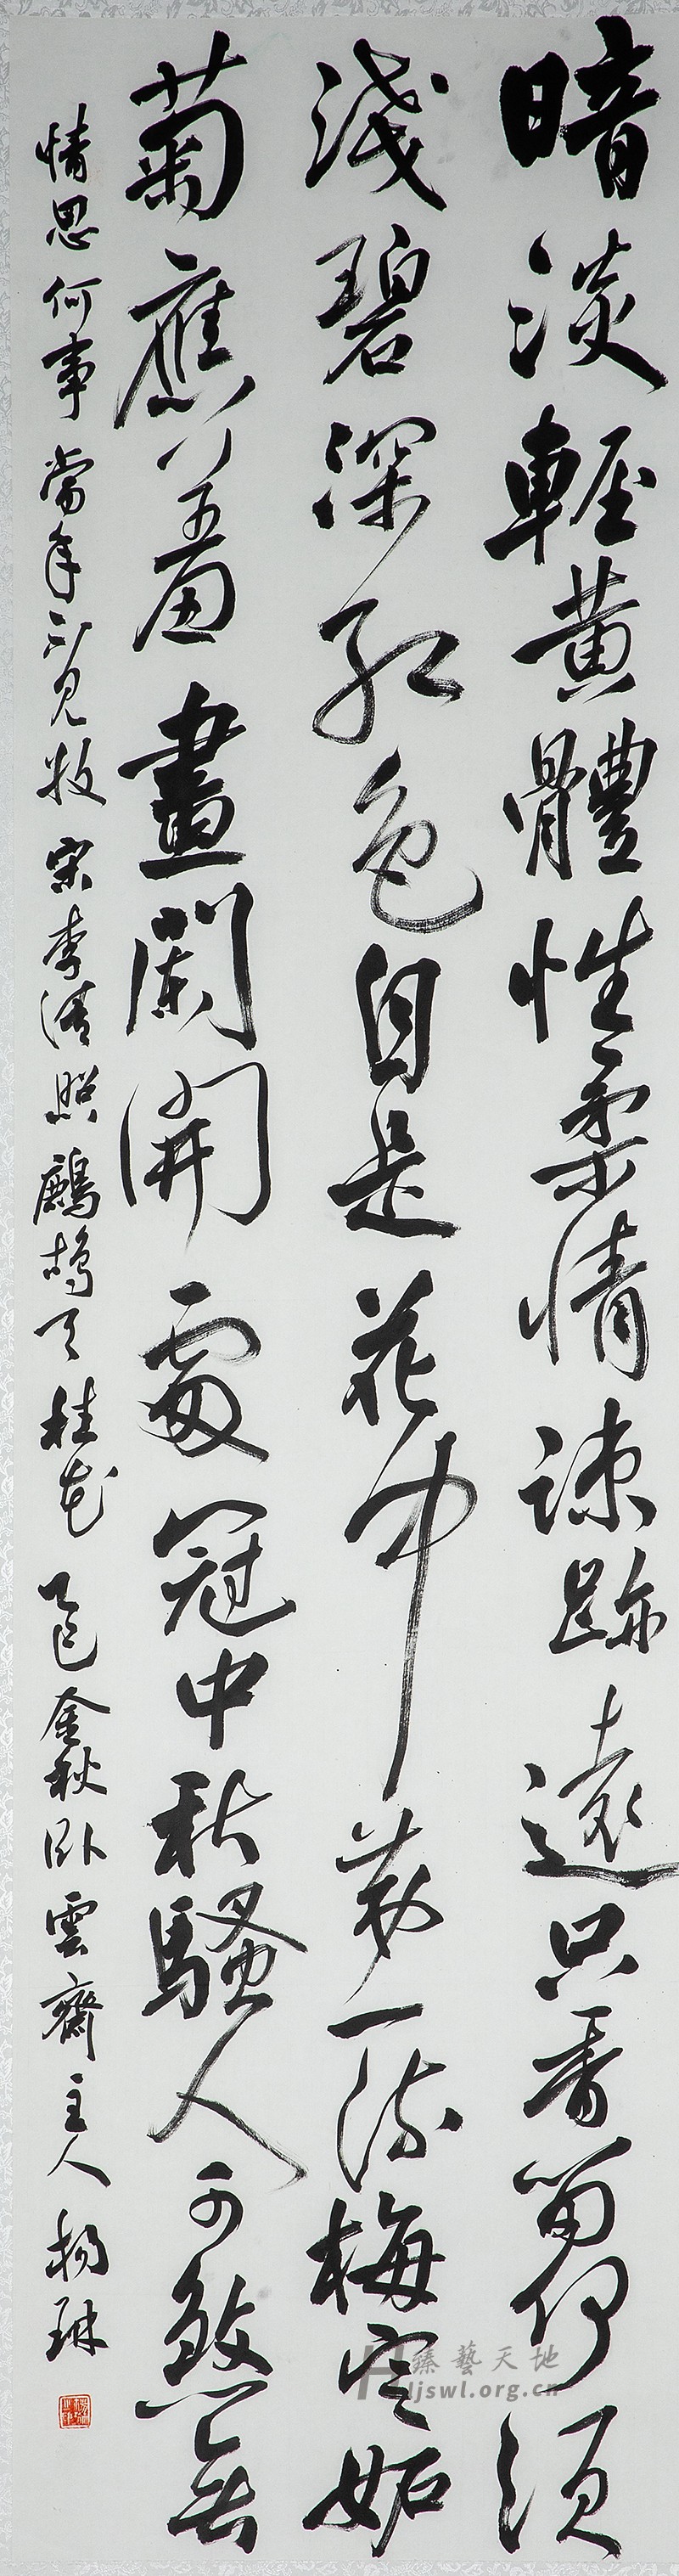 暗淡輕黄體性柔情疎跡遠只香留何須
淺碧深紅色自是花中第一流梅定妬
菊應羞畫闌開處冠中秋騷人可煞無
情思何事當年不見收 宋李清照鷓鴣天桂花 乙巳金秋卧雲齋主人楊琳
臻藝天地
Hljswl.org.cn